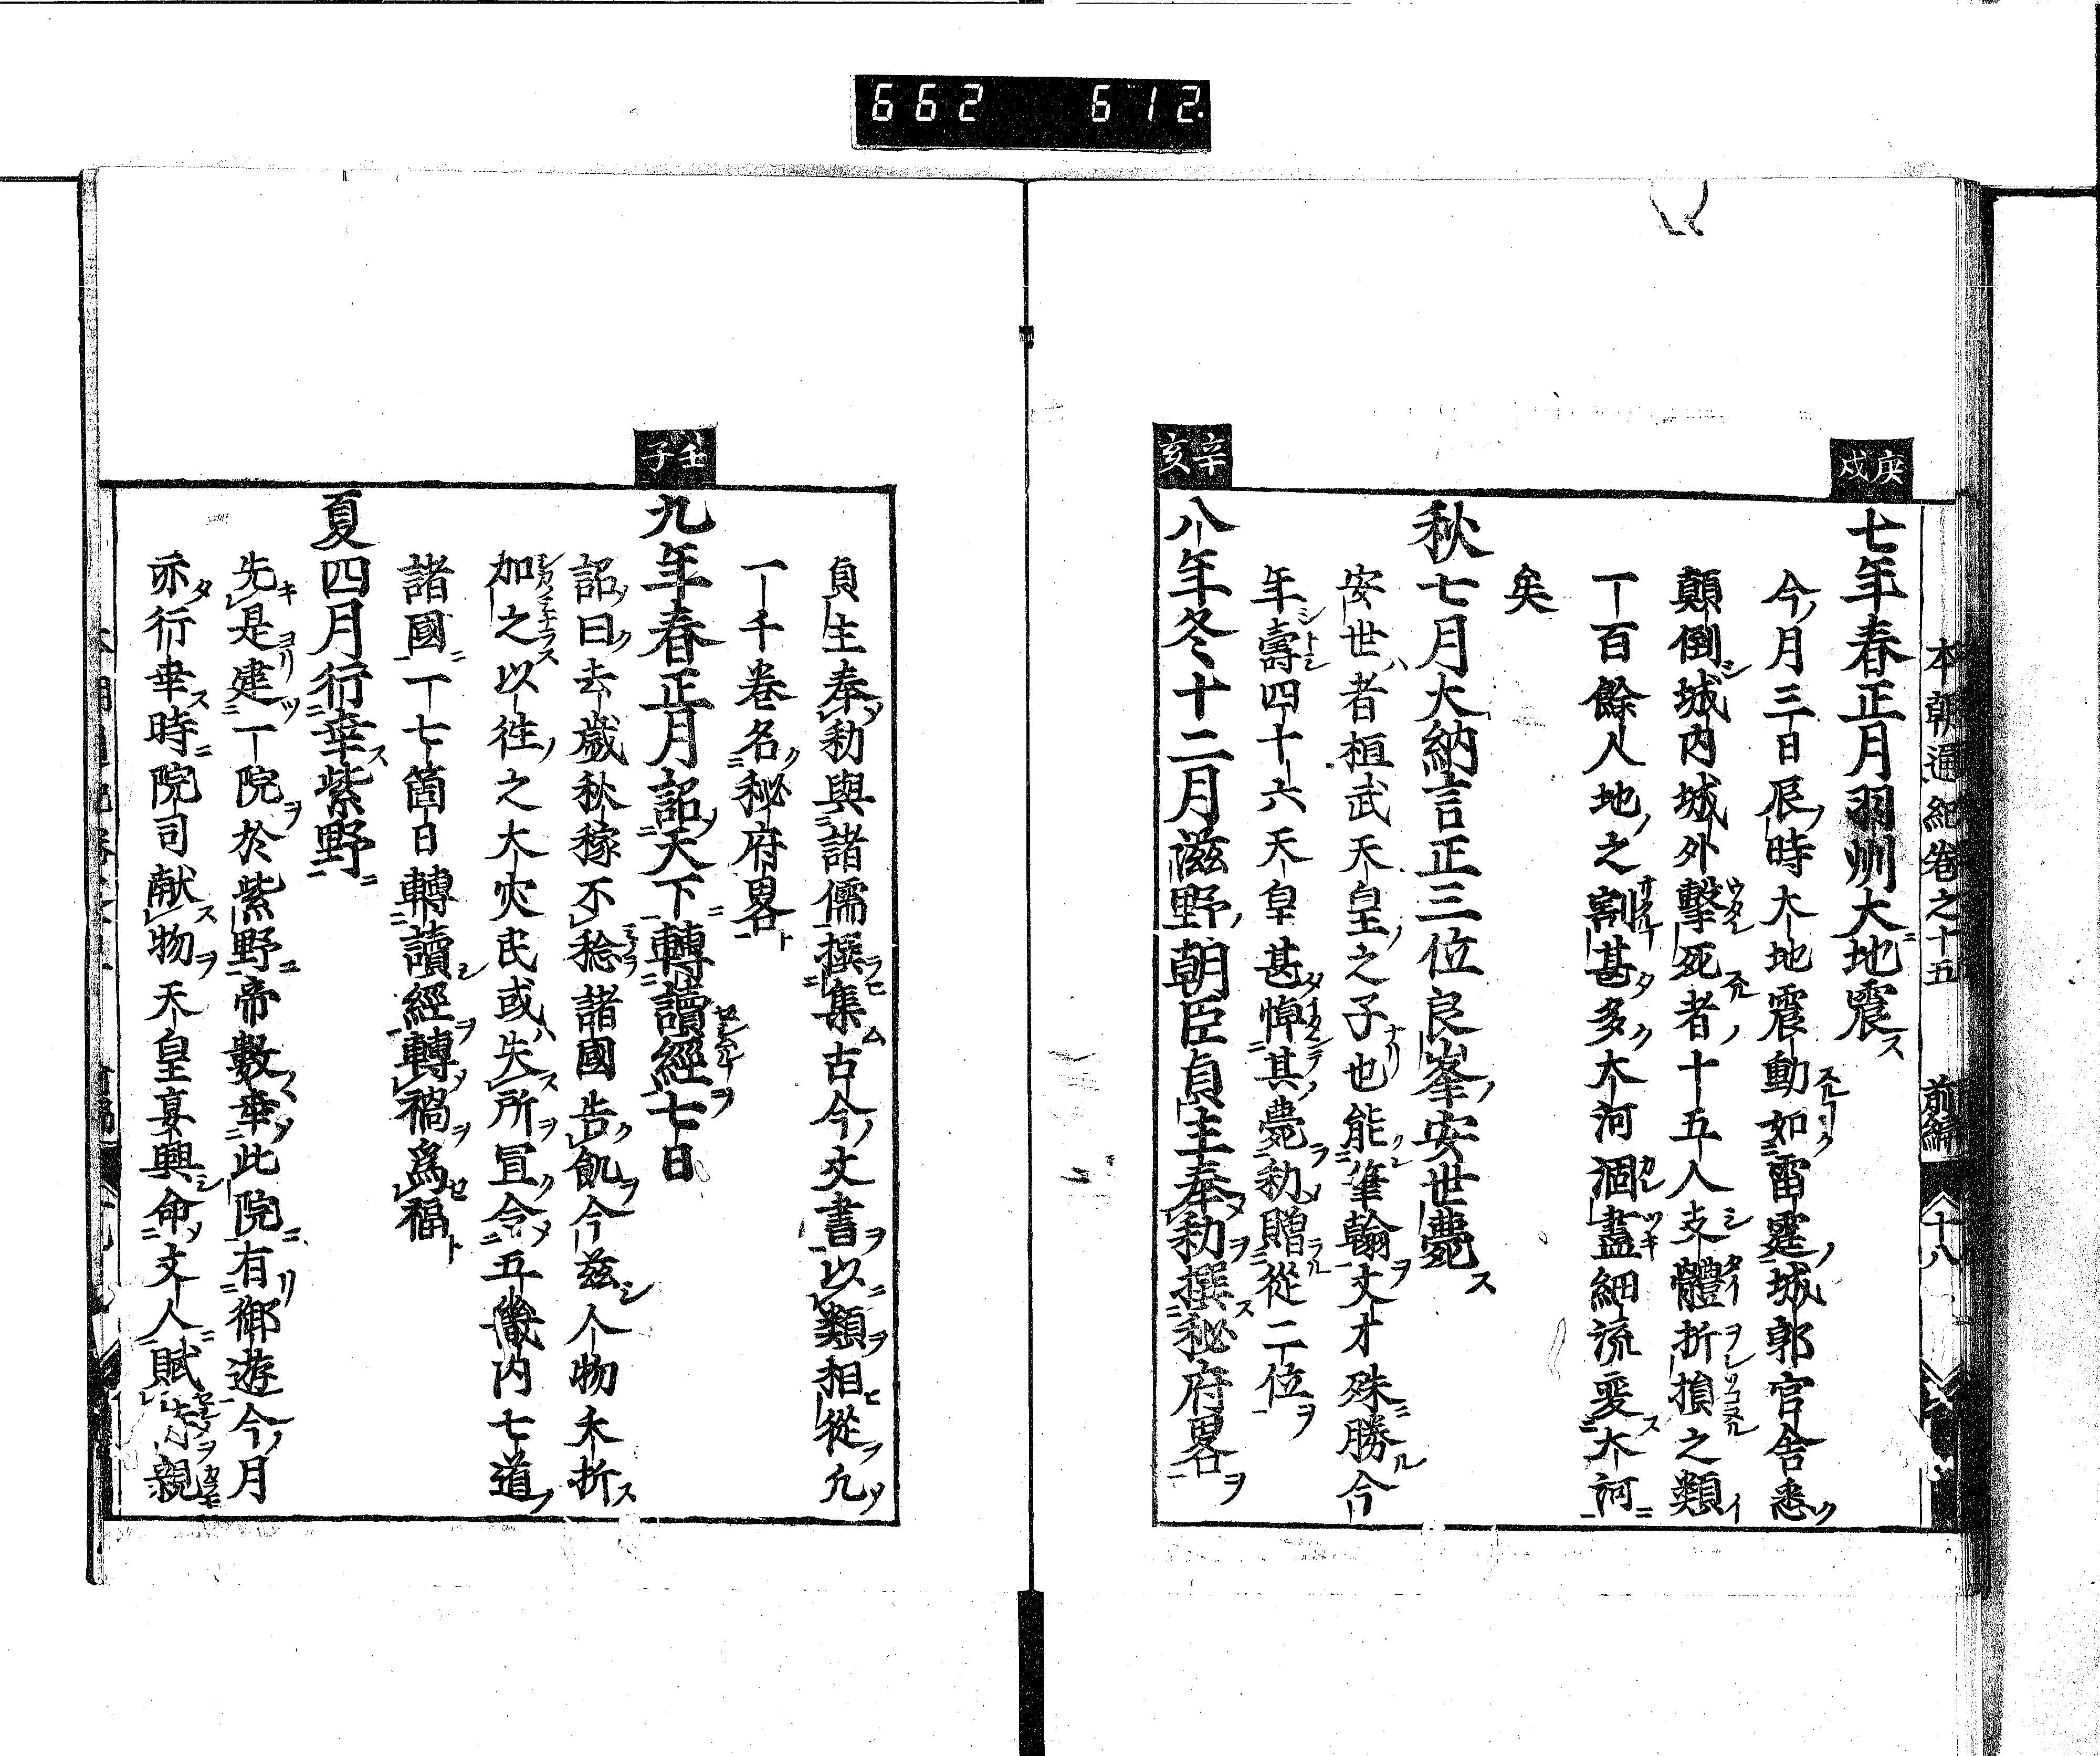 662 612.
本朝通紀卷之十五 前編 十八
庚戌
七年春正月羽州大地震ス
今月三日辰時大地震動如雷霆城郭官舍悉
顛倒城内城外擊死者十五人支體折損之類
一百餘人地之割甚多大河涸盡細流変大河
矣
秋七月大納言正三位良峯安世薨ス
安世者桓武天皇之子也能筆翰文才殊勝今
年壽四十六天皇甚悼其薨勅贈從二位
辛亥
八年冬十二月滋野朝臣貞主奉勅撰秘府畧
貞主奉勅與諸儒撰集古今文書以類相從凡
一千巻名秘府畧
壬子
九年春正月詔天下轉讀經七日
詔曰去歲秋稼不稔諸國告飢今茲人物夭折
加之以往之大灾民或失所冝令五畿内七道
諸國一七箇日轉讀經轉禍爲福
夏四月行幸紫野
先是建一院於紫野帝數幸此院有御遊今月
亦行幸時院司献物天皇宴興命文人賦 親